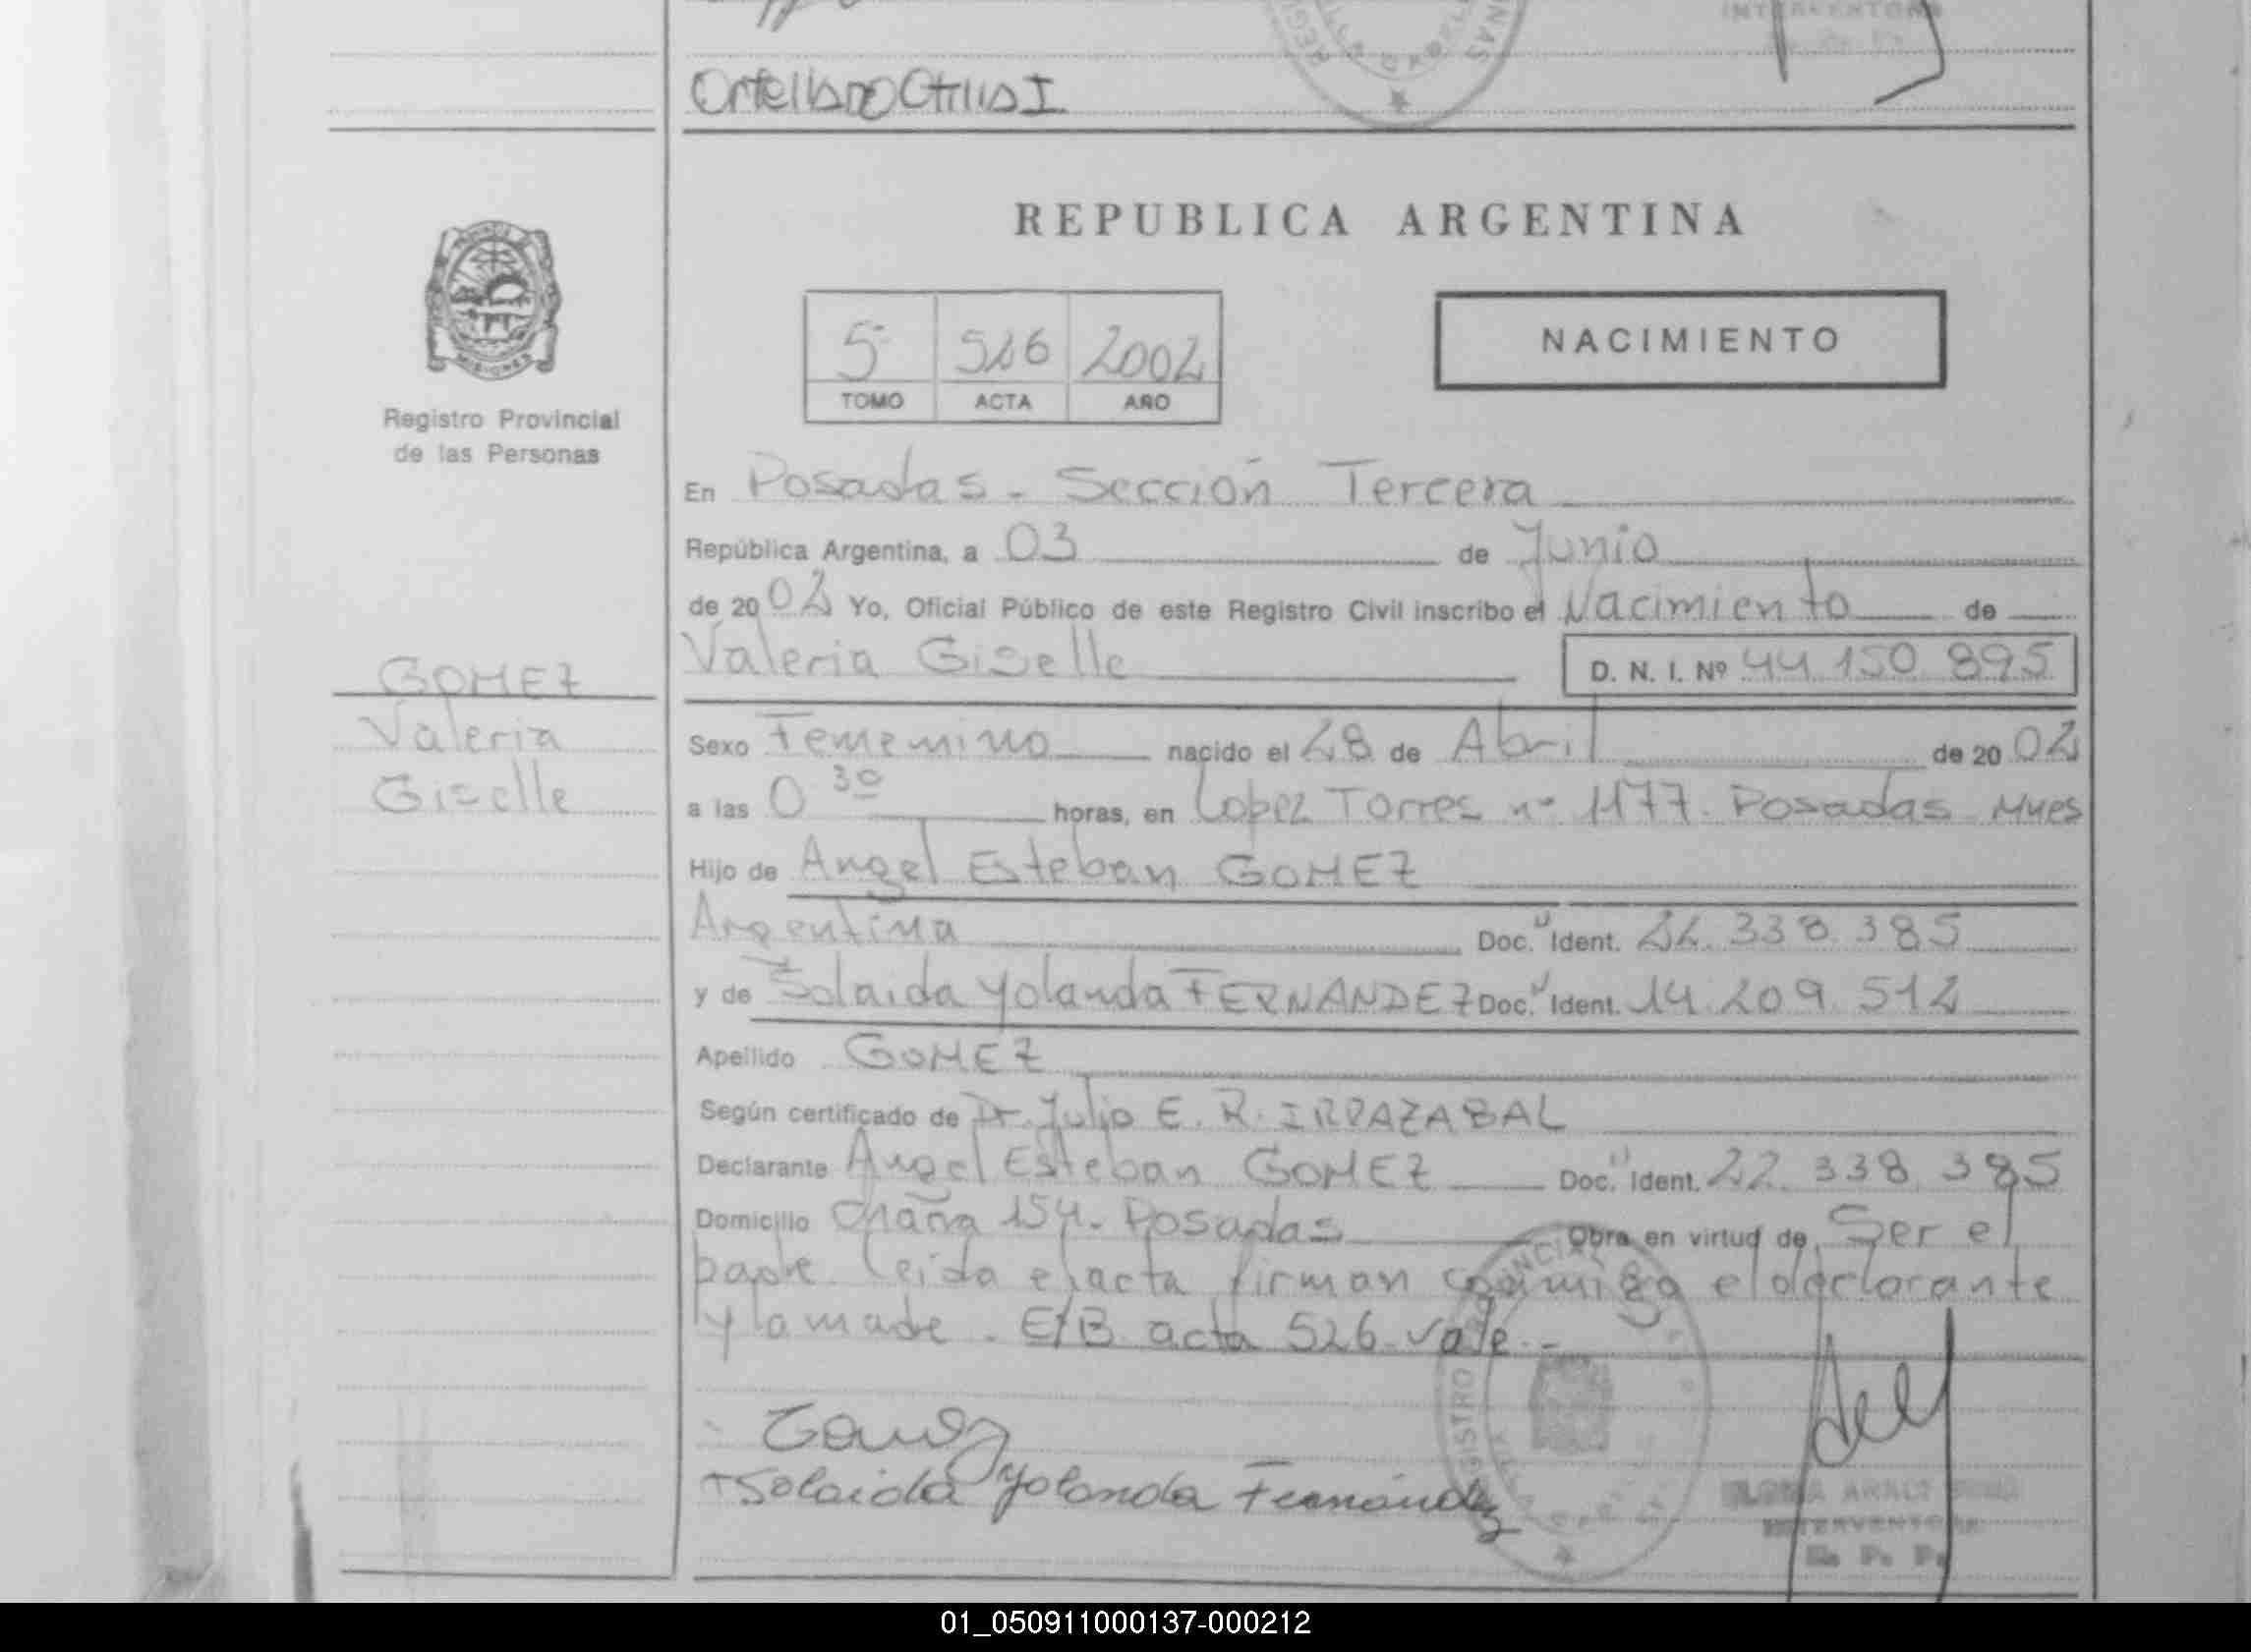 Ortellado Otilia I
REPUBLICA ARGENTINA
5 526 2002
TOMO ACTA AÑO
NACIMIENTO
MISIONES
Registro Provincial
de las Personas
En Posadas - Sección Tercera
República Argentina, a 03 de Junio
de 2002 Yo, Oficial Público de este Registro Civil inscribo el Nacimiento de
Valeria Giselle D. N. I. Nº 44 150 895
GOMEZ
Valeria
Giselle
Sexo Femenino nacido el 28 de Abril de 2002
a las 0 30 horas, en Lopez Torres nº 1177. Posadas Mnes
Hijo de Angel Esteban GOMEZ
Argentina Doc. Ident. 22. 338. 385
y de Solaida Yolanda FERNANDEZ Doc. Ident. 14. 209. 512
Apellido GOMEZ
Según certificado de Dr. Julio E. R. IRRAZABAL
Declarante Angel Esteban GOMEZ Doc. Ident. 22. 338. 385
Domicilio Chaña 154. Posadas Obra en virtud de Ser el
padre. Leida el acta firman conmigo el declarante
y la madre. E/B acta 526. vale. -
Gomez
Solaida Yolanda Fernández
INTERVENTORA
R. P. P.
01_050911000137-000212